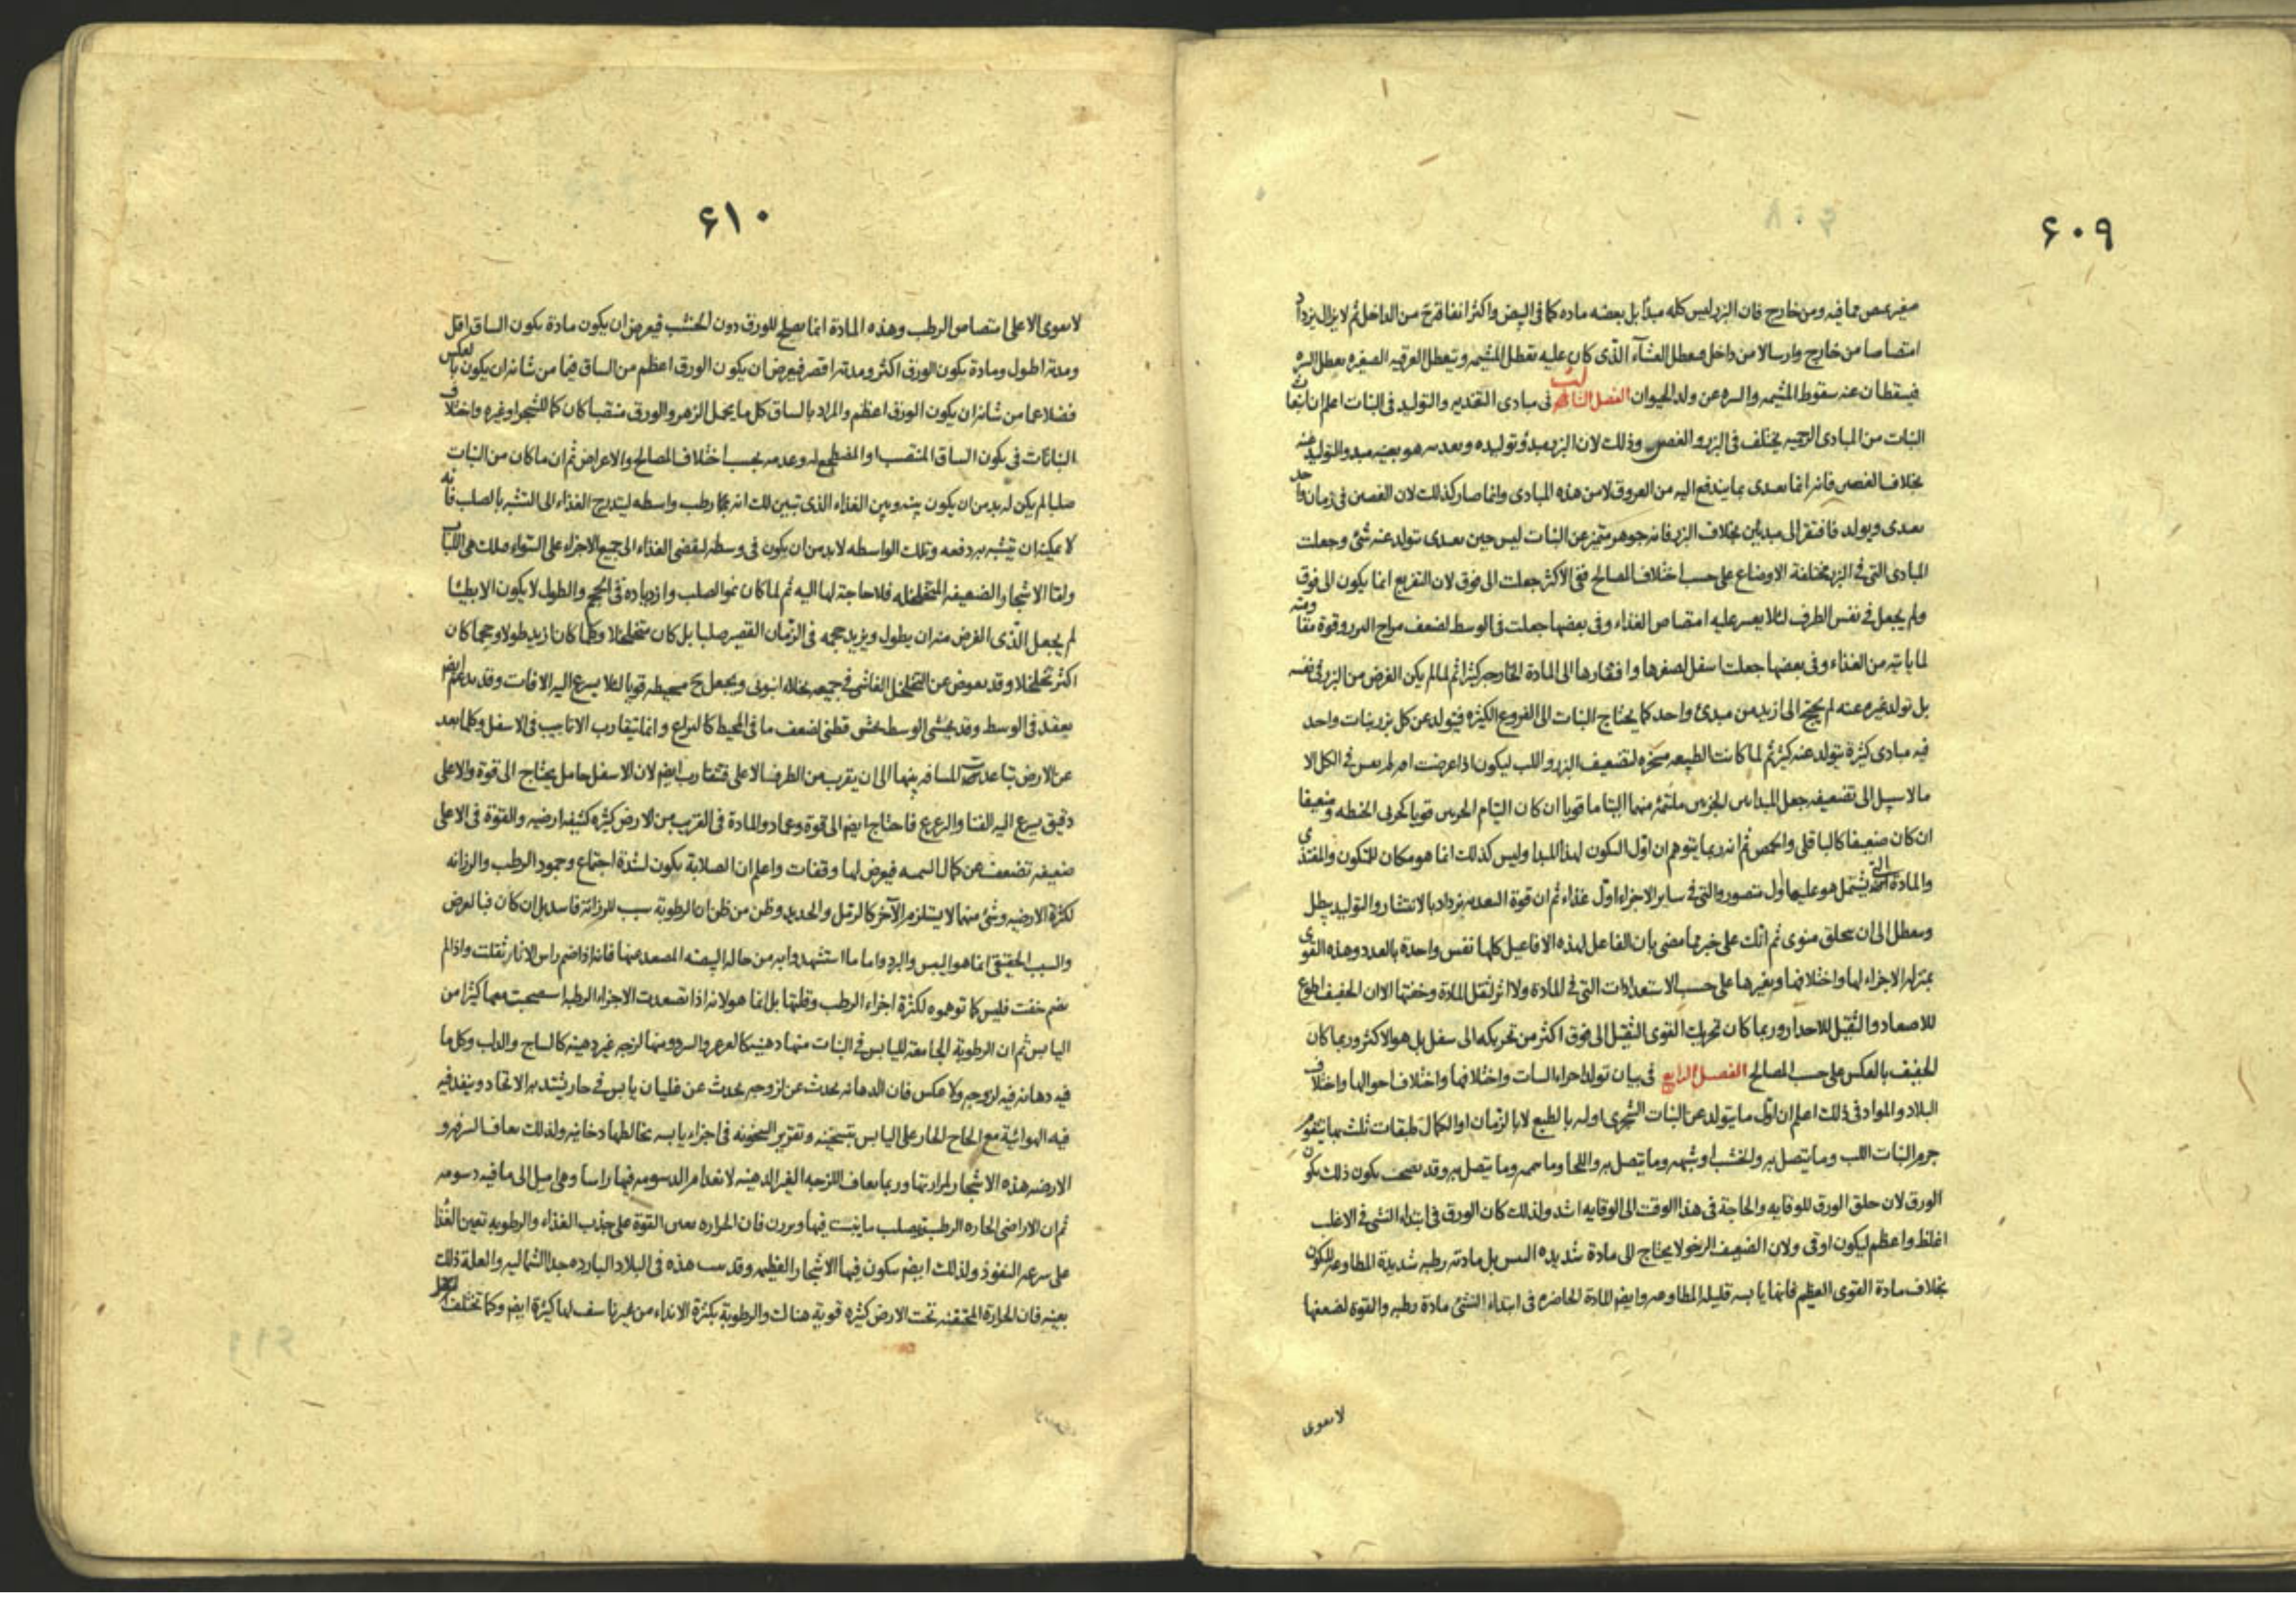 ۶۰۹
فيمتص مما فيه ومن خارج فان البزر ليس كله مبدأ بل بعضه ماده كما فى البيض واكثر انفاقه من الداخل ثم لا يزال يزداد
امتصاصا من خارج وارسالا من داخل فيعطل الغشآء الذى كان عليه تعطل المشيمه وتتعطل العرقيه الصغيره تعطل السره
فيسقطان عنه سقوط المشيمه والسره عن ولد الحيوان الفصل الثالث فى مبادى التغذيه والتوليد فى النبات اعلم ان انبعاث
النبات من المبادى الرحميه يختلف فى البزر والغصن وذلك لان البزر مبدؤ توليده وتغذيه هو بعينه مبدؤ التوليد منه
بخلاف الغصن فانه انما تغذى بما يندفع اليه من العروق لا من هذه المبادى وانما صار كذلك لان الغصن فى زمان واحد
تغذى ويولد فافتقر الى مبدئين بخلاف البزر فانه جوهر متميز عن النبات ليس حين تغذى تولد عنه شئ وجعلت
المبادى التى فى البزر مختلفة الاوضاع على حسب اختلاف المصالح ففى الاكثر جعلت الى فوق لان التفريع انما يكون الى فوق
ولم يجعل فى نفس الطرف لئلا يعسر عليه امتصاص الغذاء وفى بعضها جعلت فى الوسط لضعف مزاج البزر وقوة مقاومته
لما ياتيه من الغذاء وفى بعضها جعلت اسفل لصغرها وافتقارها الى المادة الخارجه كثيرا ثم لما لم يكن الغرض من البزر فى نفسه
بل تولد غيره عنه لم يحتج الى ازيد من مبدئ واحد كما يحتاج النبات الى الفروع الكثيره فيتولد عن كل بزر نبات واحد
فيه مبادى كثيرة يتولد عنه كثير ثم لما كانت الطبيعه مسخره لتضعيف البزر واللب ليكون اذا عرضت افه لم تعس فى الكل الا
ما لا سبيل الى تضعيفه جعل المبدا بين الجزئين ملتئمة منهما التياما قويا ان كان التيام الجزئين قويا كجزئى الحنطه وضعيفا
ان كان ضعيفا كالباقلى والحمص ثم انه ربما يتوهم ان اول التكون لهذا المبدا وليس كذلك انما هو مكان للتكون والمغتذى
والمادة التى يشتمل هو عليها اول متصور والتى فى ساير الاجزاء اول غذاء ثم ان قوة التغذيه تزداد بالانتشار والتوليد يبطل
وتعطل الى ان يتخلق منوى ثم انك على خبر مما مضى بان الفاعل لهذه الافاعيل كلها نفس واحدة بالعدد وهذه القوى
بمنزله الاجزاء لها واختلافها وتغيرها على حسب الاستعدادات التى فى المادة ولا اثر لثقل المادة وخفتها الا ان الخفيف اطوع
للاصعاد والثقيل للاحدار وربما كان تحريك القوى الثقيل الى فوق اكثر من تحريكه الى سفل بل هو الاكثر وربما كان
الخفيف بالعكس على حسب المصالح الفصل الرابع فى بيان تولد اجزاء النبات واختلافها واختلاف احوالها واختلاف
البلاد والمواد فى ذلك اعلم ان اول ما يتولد عن النبات الشجرى اوليه بالطبع لا بالزمان او الكمال طبقات ثلث بها يتقوم
جرم النبات اللب وما يتصل به والخشب وشبهه وما يتصل به واللحا وما يتصل به وقد يكون ذلك بكون
الورق لان خلق الورق للوقايه والحاجة فى هذا الوقت الى الوقايه اشد ولذلك كان الورق فى ابتداء النشى فى الاغلب
اغلظ واعظم ليكون اوقى ولان الضعيف الرخو لا يحتاج الى مادة شديده اليبس بل مادته رطبه شديدة المطاوعه للتكون
بخلاف مادة القوى العظيم فانها يابسه قليله المطاوعه وايضا المادة الحاضره فى ابتداء النشئ مادة رطبه والقوة لضعفها
لا تقوى
۶۱۰
لا تقوى الا على امتصاص الرطب وهذه المادة انما تصلح للورق دون الخشب فيعرض ان يكون مادة يكون الساق اقل
ومدته اطول ومادة يكون الورق اكثر ومدته اقصر فيعرض ان يكون الورق اعظم من الساق فيما من شانه ان يكون بالعكس
فضلا عما من شانه ان يكون الورق اعظم والمراد بالساق كل ما يحمل الزهر والورق منتصبا كان كالشجر او غيره واختلاف
النباتات فى تكون الساق المنتصب او المضطجع له وعدمه بحسب اختلاف المصالح والاعراض ثم ان ما كان من النبات
صلبا لم يكن له بد من ان يكون بينه وبين الغذاء الذى تبين لك انه بما رطب واسطه ليتدرج الغذاء الى التشبه بالصلب فانه
لا يمكنه ان يتشبه به دفعه وتلك الواسطه لا بد من ان يكون فى وسطه ليفضى الغذاء الى جميع الاجزاء على السواء وتلك هى اللباب
واما الاشجار الضعيفه المتخلخله فلا حاجة لها اليه ثم لما كان نمو الصلب وازدياده فى الحجم والطول لا يكون الا بطيئا
لم يجعل الذى الغرض منه ان يطول ويزيد حجمه فى الزمان القصير صلبا بل كان متخلخلا وكلما كان ازيد طولا وحجما كان
اكثر تخلخلا وقد يعوض عن التخلخل الفاشى فى جميعه بخلاء انبوبى ويجعل ح محيطه قويا لئلا يسرع اليه الافات وقد يدعم ايضا
بعقد فى الوسط وقد يحشى الوسط حشى قطنى لضعف ما فى المحيط كاليراع وانما يتقارب الانابيب فى الاسفل وكلما بعد
عن الارض تباعدت المسافه بينها الى ان يقرب من الطرف الاعلى فتتقارب ايضا لان الاسفل حامل يحتاج الى قوة والاعلى
دقيق يسرع اليه الفنا والزعزع فاحتاج ايضا الى قوة وعماد والمادة فى القريب من الارض كثيره كثيفه ارضيه والقوة فى الاعلى
ضعيفه تضعف عن كمال فيعرض لها وقفات واعلم ان الصلابة يكون لشدة اجتماع وجمود الرطب والرزانه
لكثرة الارضيه وشئ منهما لا يستلزم الآخر كالرمل والحديد وظن من ظن ان الرطوبة سبب للرزانة فاسد بل ان كان فبالعرض
والسبب الحقيقى انما هو اليبس والبرد واما ما استشهدوا به من حال البيضه المصعد عنها فانه اذا ضم راس الاناء ثقلت واذا لم
يضم خفت فليس كما توهموه لكثرة اجزاء الرطب وقلتها بل انما هو لانه اذا تصعدت الاجزاء الرطبه استصحبت معها كثيرا من
اليابس ثم ان الرطوبة الجامعة لليابس فى النبات منها دهنيه كالعرعر والسرو ومنها لزجه غير دهنيه كالساج والدلب وكل ما
فيه دهانه فيه لزوجه ولا عكس فان الدهانه تحدث عن لزوجه يحدث عن غليان يابس فى حار يشتد به الاتحاد وينفذ فيه
فيه الهوائية مع الحاح الحار على اليابس بتسخينه وتقرير السخونه فى اجزاء يابسه تخالطها دخانيه ولذلك تعاف السرفه و
الارضه هذه الاشجار لمرارتها وربما تعاف اللزجه الغير الدهنيه لانعدام الدسومه فيها راسا وهى اميل الى ما فيه دسومه
ثم ان الاراضى الحاره الرطبه يصلب ما ينبت فيها ويرزن فان الحراره تعين القوة على جذب الغذاء والرطوبه تعين الغذا
على سرعه النفوذ ولذلك ايضا يتكون فيها الاشجار العظيمه وقد ينبت هذه فى البلاد البارده جدا الشماليه والعلة ذلك
بعينه فان الحرارة المحتقنه تحت الارض كثيره قوية هنالك والرطوبة بكثرة الانداء من غير ناشف لها كثيرة ايضا وكما تختلف